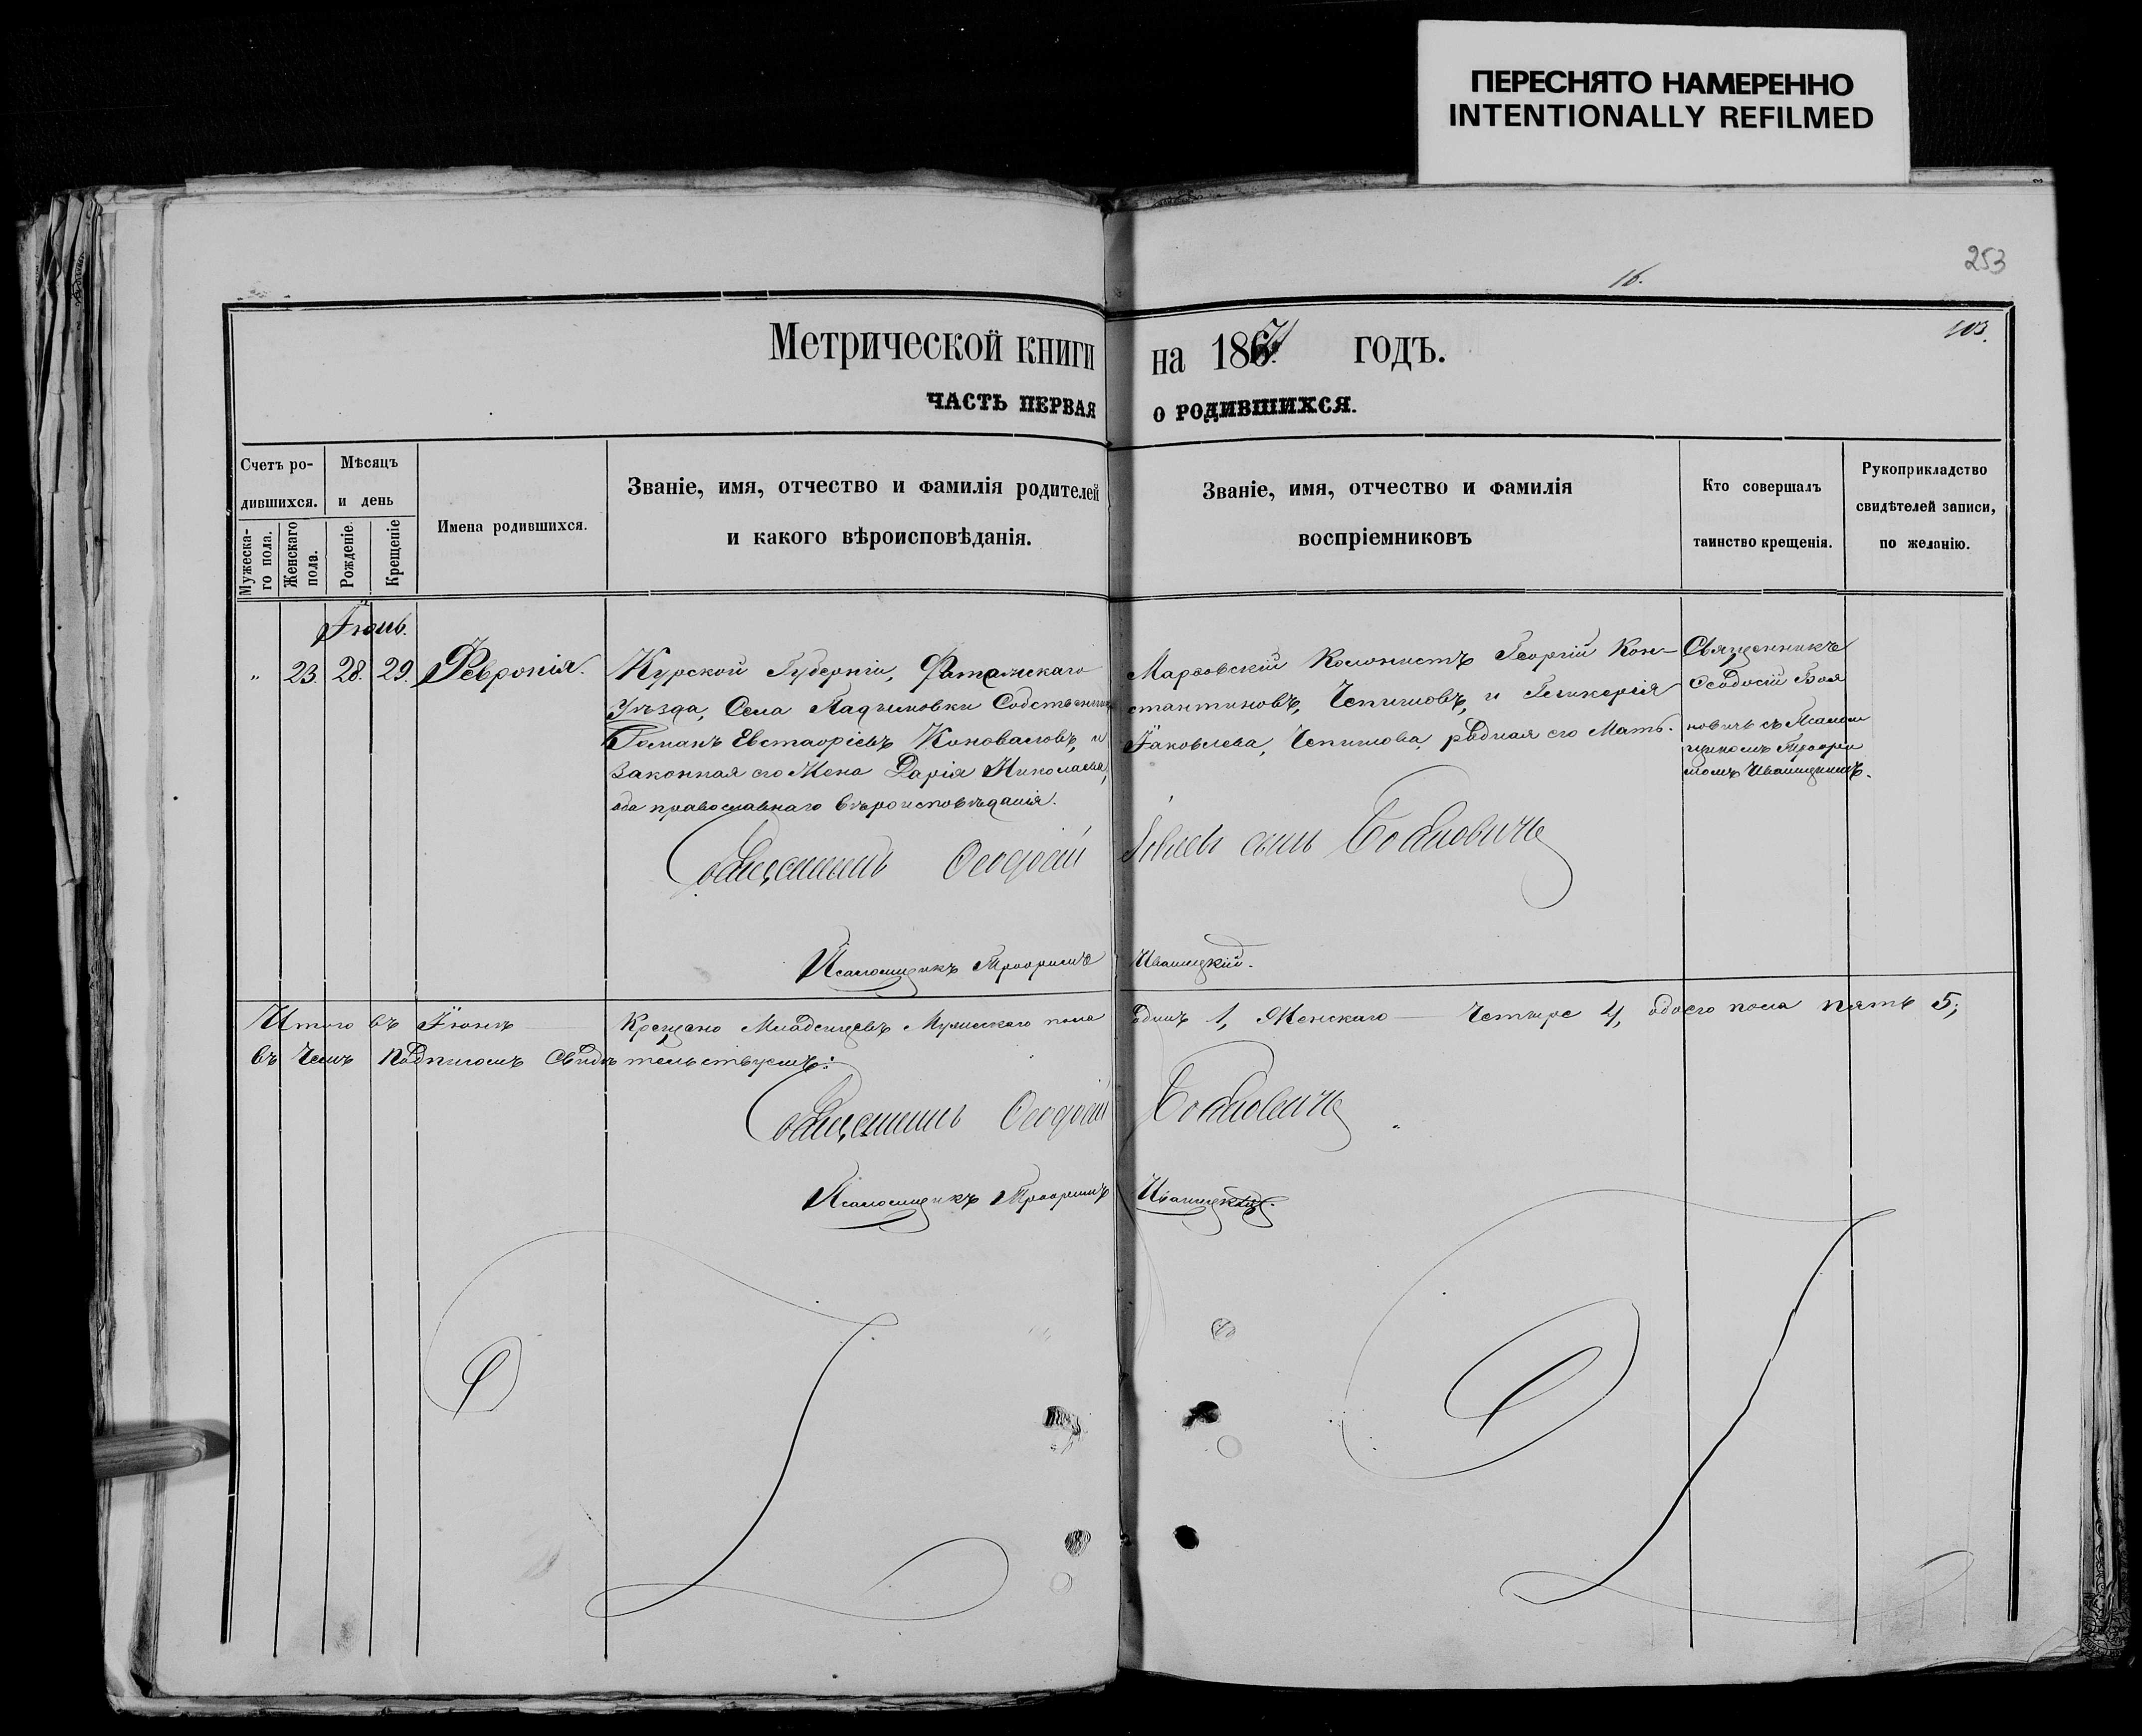 ПЕРЕСНЯТО НАМЕРЕННО
INTENTIONALLY REFILMED
253
16.
103.
Метрической книги на 1871 годъ.
ЧАСТЬ ПЕРВАЯ О РОДИВШИХСЯ.
Счетъ ро-
дившихся.
Мужеска-
го пола.
Женскаго
пола.
Мѣсяцъ
и день
Рожденіе.
Крещеніе
Имена родившихся.
Званіе, имя, отчество и фамилія родителей
и какого вѣроисповѣданія.
Званіе, имя, отчество и фамилія
воспріемниковъ
Кто совершалъ
таинство крещенія.
Рукоприкладство
свидѣтелей записи,
по желанію.
„ 23. 28. 29. Февронія.
Курской Губерніи, Фатежскаго
Уѣзда, Села
Романъ Евстафіевъ Коноваловъ, и
Законная его Жена Дарія Николаева,
оба православнаго вѣроисповѣданія.
Колонистъ Георгій Кон-
стантиновъ, Чепишовъ, и Гликерія
Іаковлева, Чепишова, родная его Мать.
Священникъ
Ѳеодосій Боя
новичъ съ Псалом
щикомъ Трофи
момъ Ивашицкимъ.
Священникъ Ѳеодосій Бояновичъ
Псаломщикъ Трофимъ Ивашицкій.
Итого въ Іюнѣ Крещено Младенцевъ Мужескаго пола одинъ 1, Женскаго — Четыре 4, обоего пола пять 5;
въ Чемъ Подписомъ Свидѣтельствуемъ:
Священникъ Ѳеодосій Бояновичъ
Псаломщикъ Трофимъ Ивашицкій.